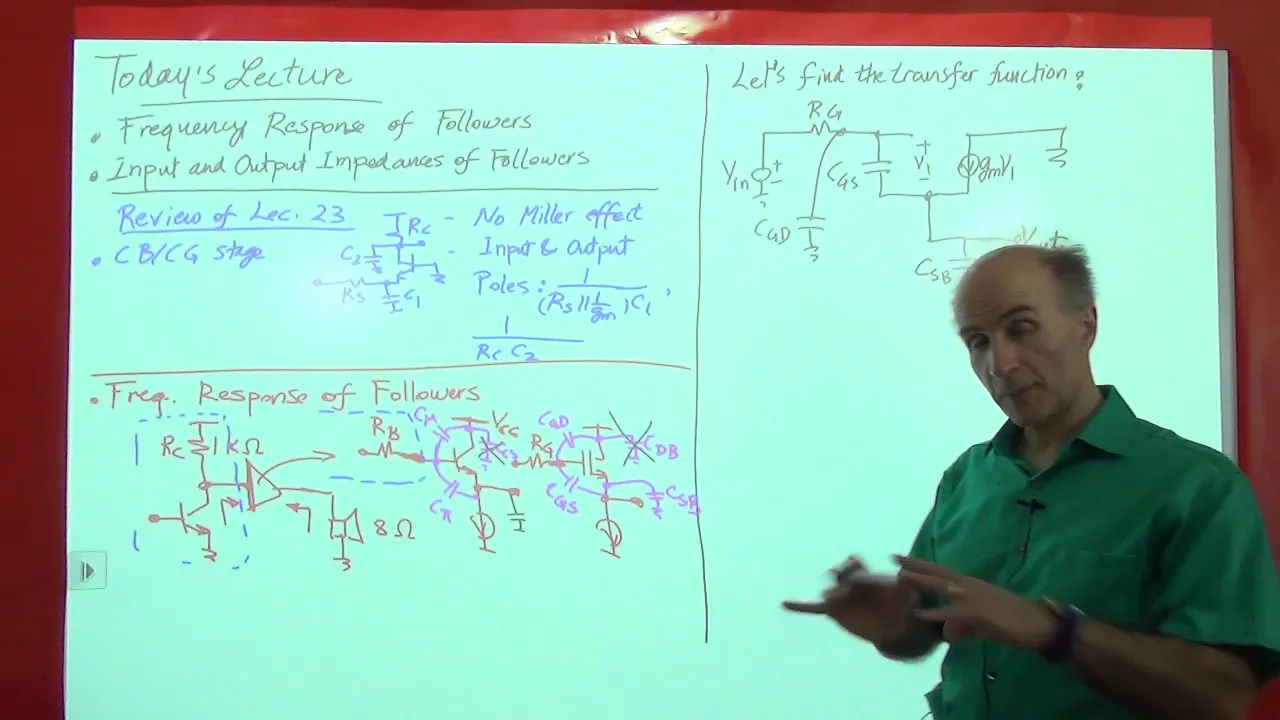 Today's Lecture
• Frequency Response of Followers
• Input and Output Impedances of Followers
Review of Lec. 23
• CB/CG stage
RC
C2
RS
C1
- No Miller effect
- Input & Output
Poles: 1/(RS||1/gm)C1,
1/RC C2
• Freq. Response of Followers
RC 1 kΩ
8 Ω
RB
Cμ
VCC
Cπ
RG
CGD
CDB
CGS
CSB
Let's find the transfer function:
RG
Vin
+
-
CGD
CGS
+
V1
-
gmV1
Vout
CSB